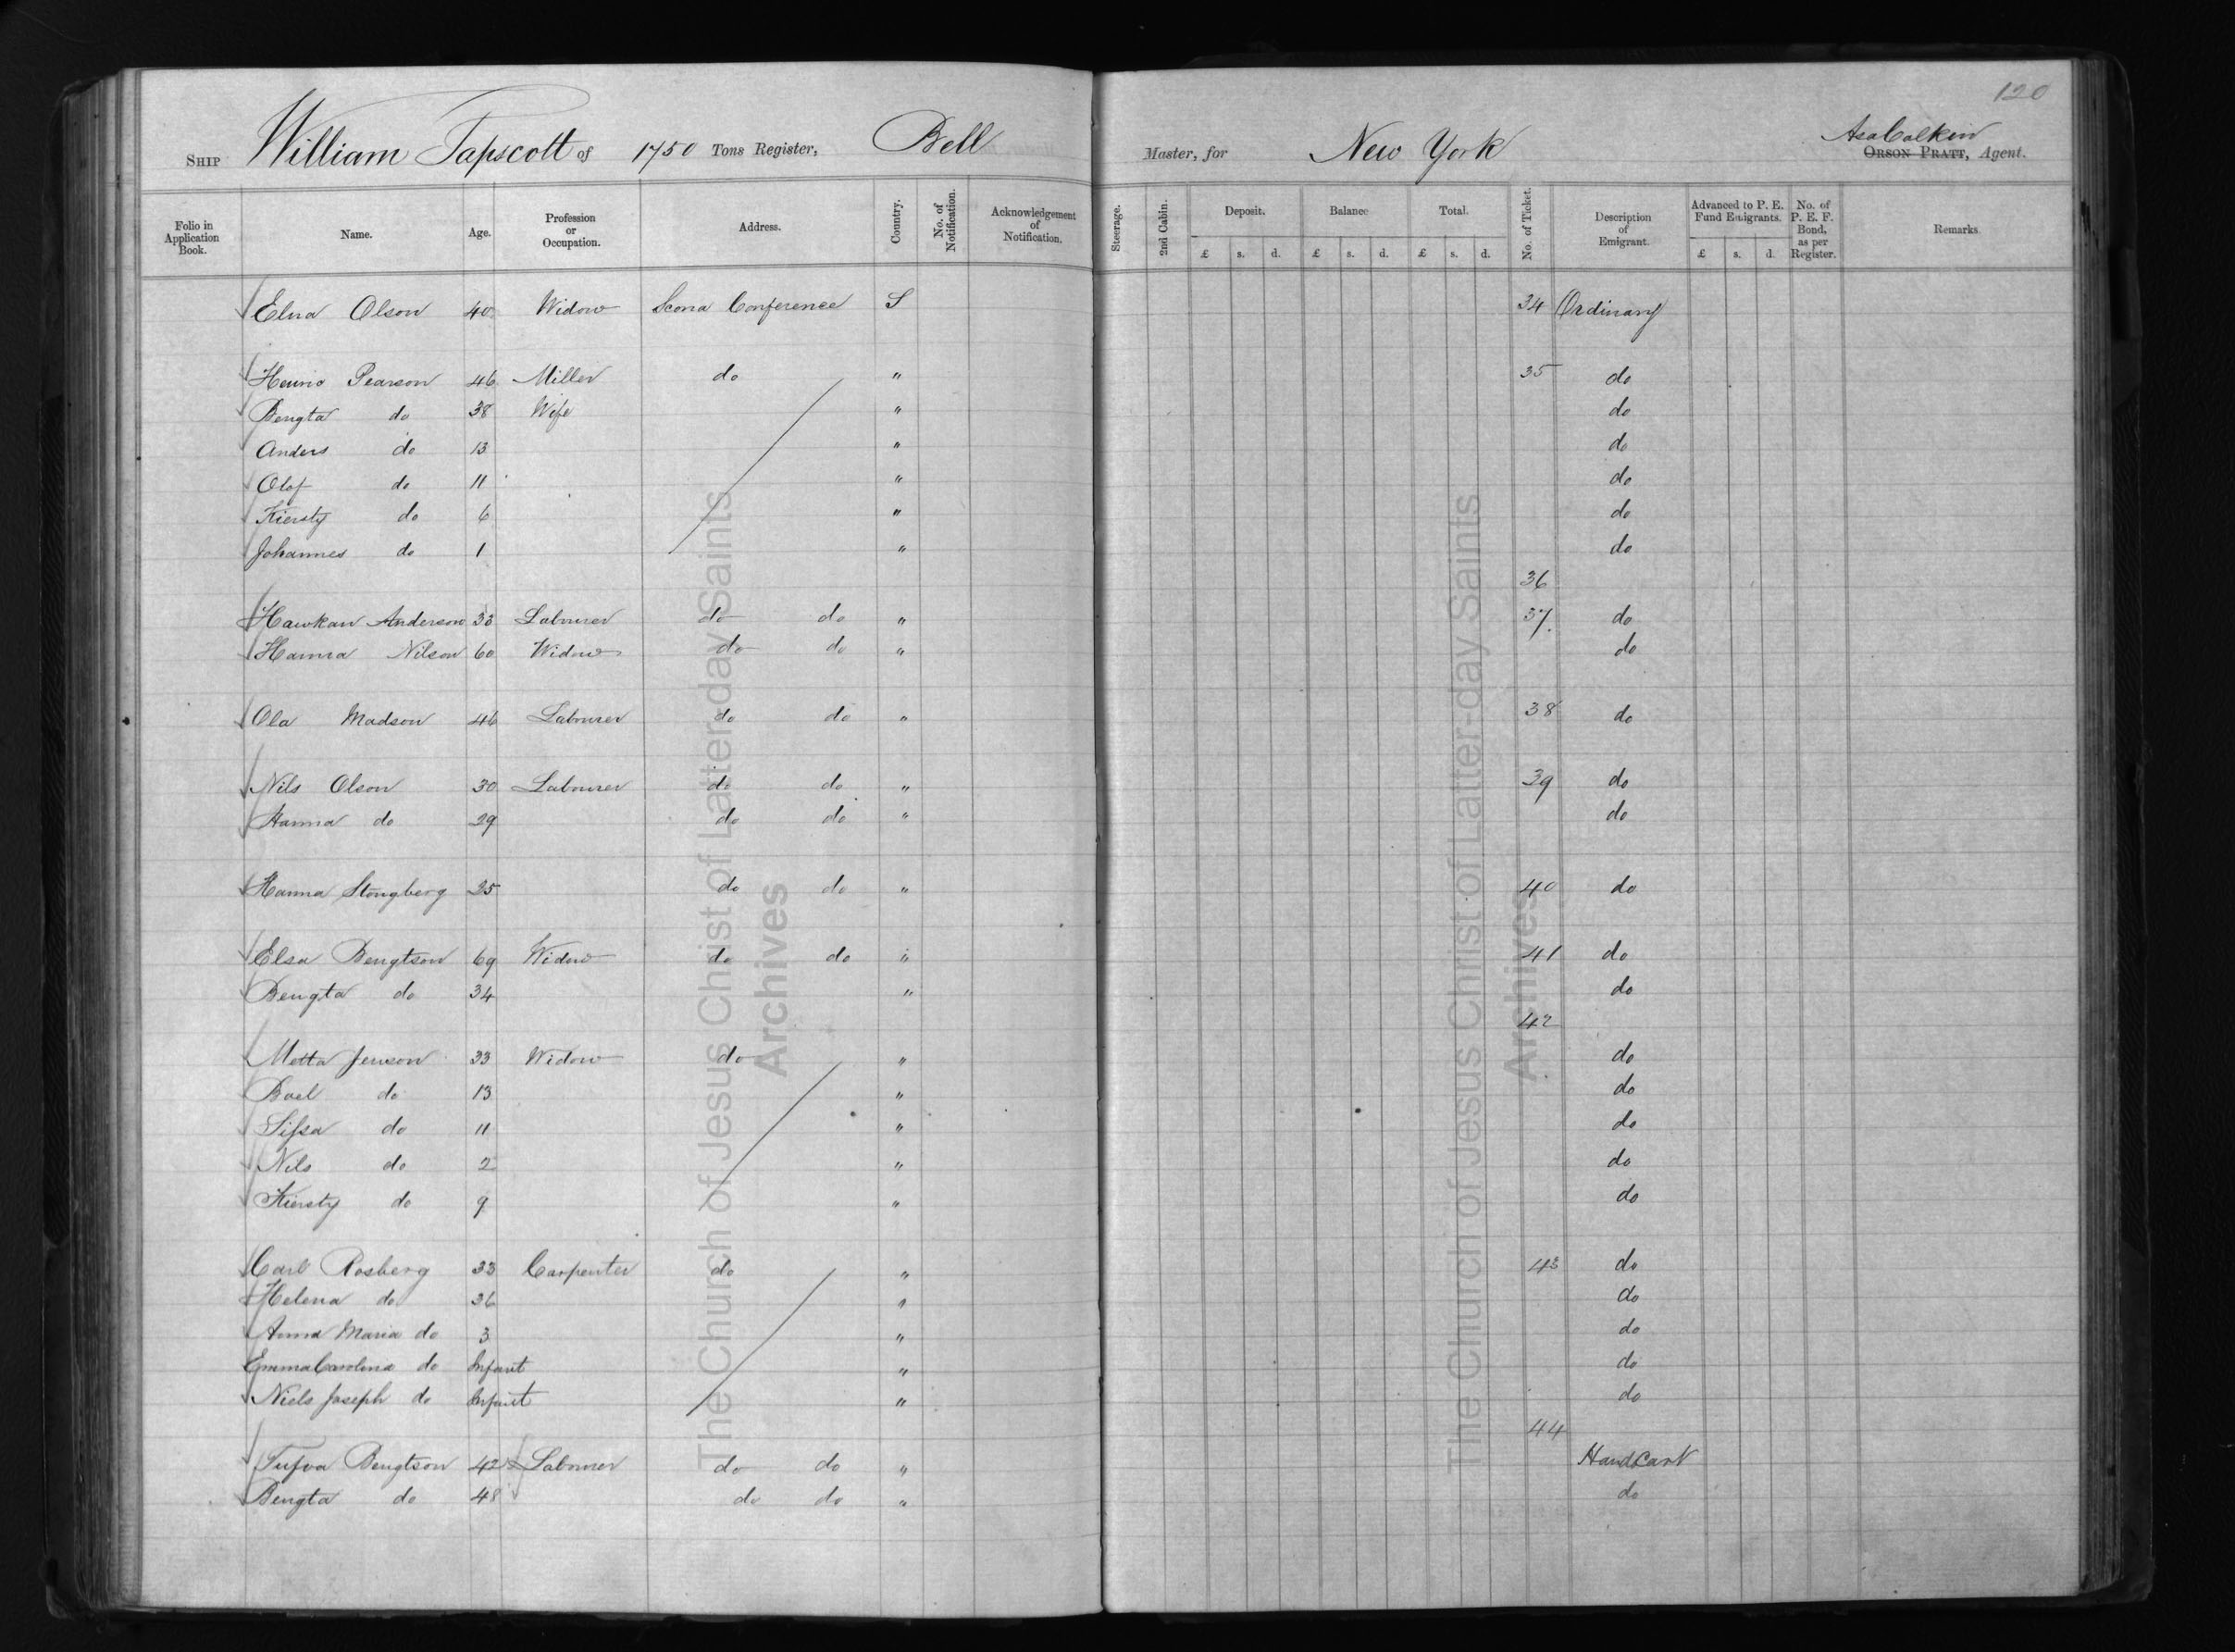 120
SHIP William Tapscott of 1750 Tons Register, Bell Master, for New York Asa Calkin ORSON PRATT, Agent.
Folio in Application Book. Name. Age. Profession or Occupation. Address. Country. No. of Notification. Acknowledgement of Notification. Steerage. 2nd Cabin. Deposit. Balance Total. No. of Ticket. Description of Emigrant. Advanced to P. E. Fund Emigrants. No. of P. E. F. Bond, as per Register. Remarks
£ s. d. £ s. d. £ s. d. £ s. d.
Elna Olson 40 Widow Scona Conference S 34 Ordinary
Pearson 46 Miller do " 35 do
Bengta do 38 Wife " do
Anders do 13 " do
Olof do 11 " do
Kiersty do 6 " do
Johannes do 1 " do
36
Hawkan Anderson 33 Labourer do do " 37 do
Hanna Nilson 60 Widow do do " do
Ola Madson 46 Labourer do do " 38 do
Nils Olson 30 Labourer do do " 39 do
Hanna do 29 do do " do
Hanna Stongberg 25 do do " 40 do
Elsa Bengtson 69 Widow do do " 41 do
Bengta do 34 " do
42
Metta Jenson 33 Widow do " do
Boel do 13 " do
Sissa do 11 " do
Nils do 2 " do
Kiersty do 9 " do
Carl Rosberg 33 Carpenter do " 43 do
Helena do 36 " do
Anna Maria do 3 " do
Emma Carolina do Infant " do
Niels Joseph do Infant " do
44
Bengtson 42 Labourer do do " Handcart
Bengta do 48 do do " do
The Church of Jesus Christ of Latter-day Saints
Archives
The Church of Jesus Christ of Latter-day Saints
Archives